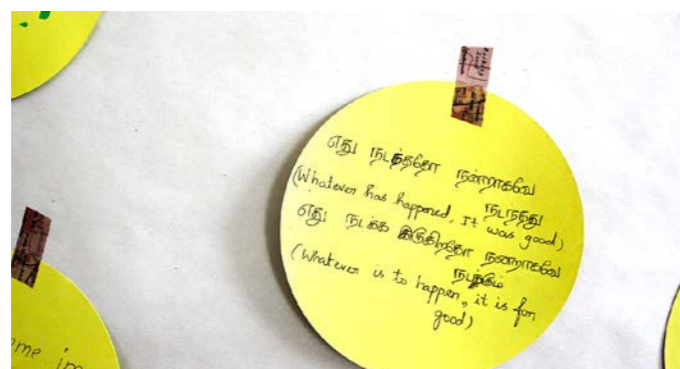 எது நடந்ததோ நன்றாகவே
நடந்தது
(Whatever has happened, It was good)
எது நடக்க இருக்கிறதோ நன்றாகவே
நடக்கும்
(Whatever is to happen, it is for
good)
me im